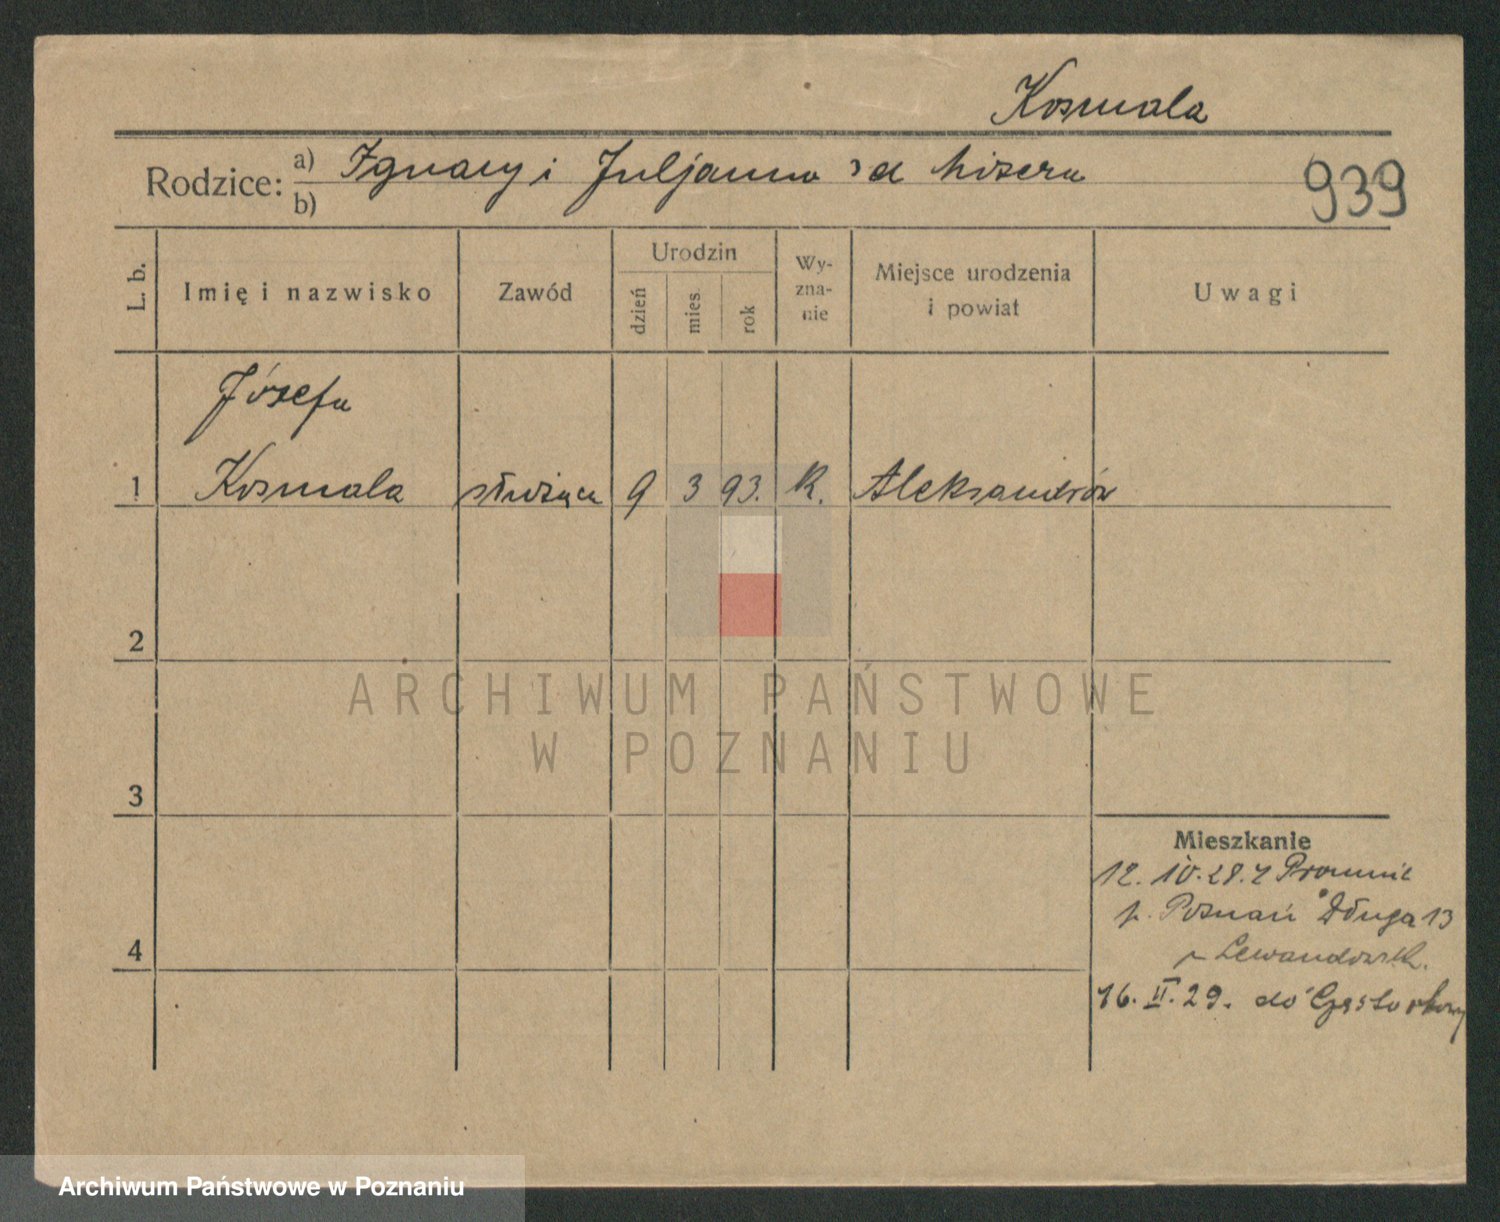 Kosmala
Rodzice: a) Ignacy i Juljanna zd Misera
b)
939
L. b.
Imię i nazwisko
Zawód
Urodzin
dzień
mies.
rok
Wy-
zna-
nie
Miejsce urodzenia
i powiat
Uwagi
Józefa
1 Kosmala służąca 9 3 93. R. Aleksandrów
2
ARCHIWUM PAŃSTWOWE
W POZNANIU
3
Mieszkanie
12. IV. 28. z
p. Poznań Długa 13
Lewandowsk.
4
16. II. 29. do Częstochowy
Archiwum Państwowe w Poznaniu